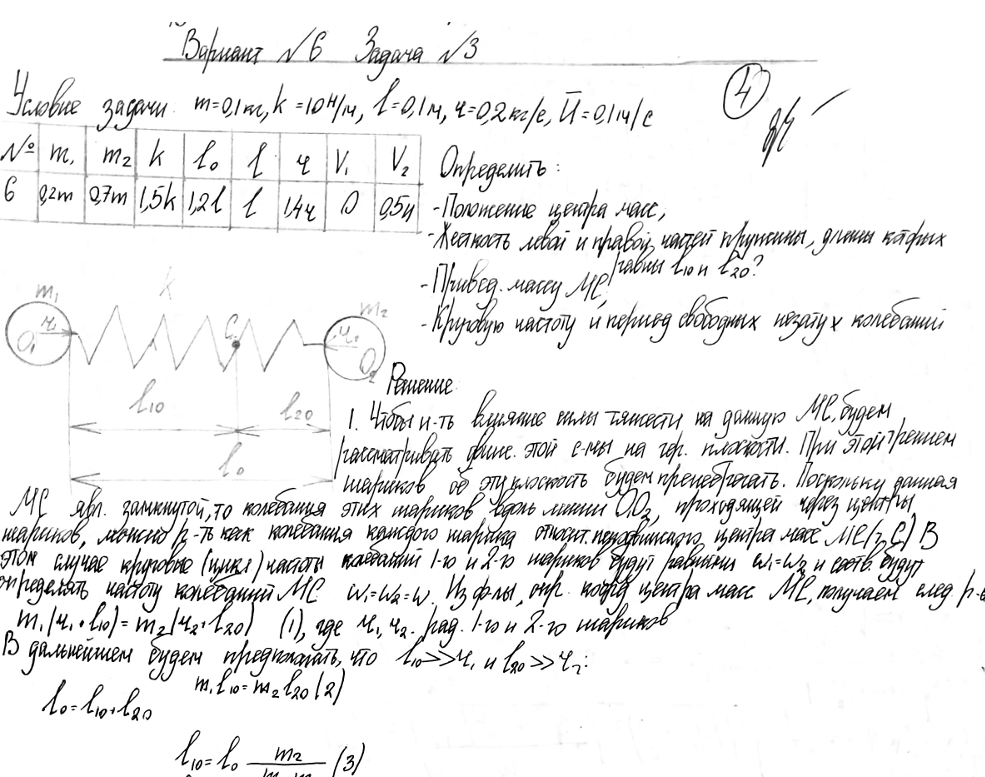 Вариант №6 Задача №3
4
Условие задачи. m=0,1кг, k=10 Н/м, l=0,1м, ч=0,2 кг/с, U=0,1м/с
№ m₁ m₂ k l₀ l ч V₁ V₂
6 0,2m 0,7m 1,5k 1,2l l 1,4ч 0 0,5u
Определить:
-Положение центра масс,
-Жесткость левой и правой частей пружины, длины которых
равны l₁₀ и l₂₀?
-Привед. массу МС,
-Круговую частоту и период свободных незатух колебаний
m₁ k m₂
ч₁ C ч₂
O₁ O₂
l₁₀ l₂₀
l₀
Решение
1. Чтобы и-ть влияние силы тяжести на данную МС, будем
рассматривать движ. этой с-мы на гор. плоскости. При этом трением
шариков об эту плоскость будем пренебрегать. Поскольку данная
МС явл. замкнутой, то колебания этих шариков вдоль линии OO₂, проходящей через центры
шариков, можно р-ть как колебания каждого шарика относит. центра масс МС(т. C) В
этом случае круговые (цикл) частоты колебаний 1-го и 2-го шариков будут равными ω₁=ω₂ и будут
определять частоту колебаний МС ω₁=ω₂=ω. Из ф-лы, опр. коорд центра масс МС, получаем след р-
m₁(ч₁+l₁₀)=m₂(ч₂+l₂₀) (1), где ч₁, ч₂. рад. 1-го и 2-го шариков
В дальнейшем будем предполагать, что l₁₀>>ч₁ и l₂₀>>ч₂:
m₁l₁₀=m₂l₂₀ (2)
l₀=l₁₀+l₂₀
l₁₀=l₀ m₂ (3)